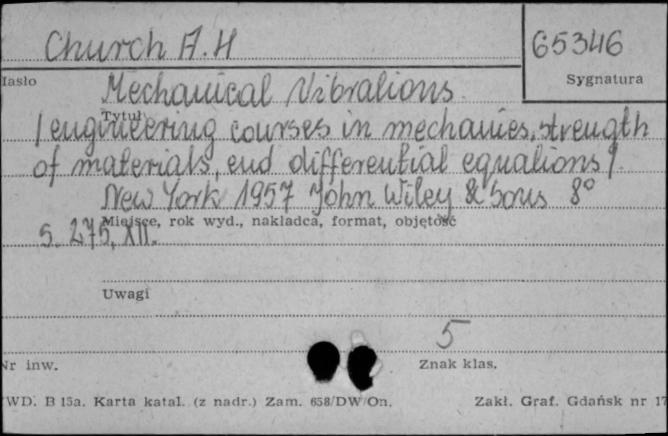 Church A.H
65346
Hasło
Sygnatura
Mechanical Vibrations
Tytuł
/engineering courses in mechanics, strength
of materials, end differential equations/.
New York 1957 John Wiley & Sons 8°
Miejsce, rok wyd., nakładca, format, objętość
S. 275, XII.
Uwagi
5
Nr inw.
Znak klas.
WD. B 15a. Karta katal. (z nadr.) Zam. 658/DW/On.
Zakł. Graf. Gdańsk nr 17